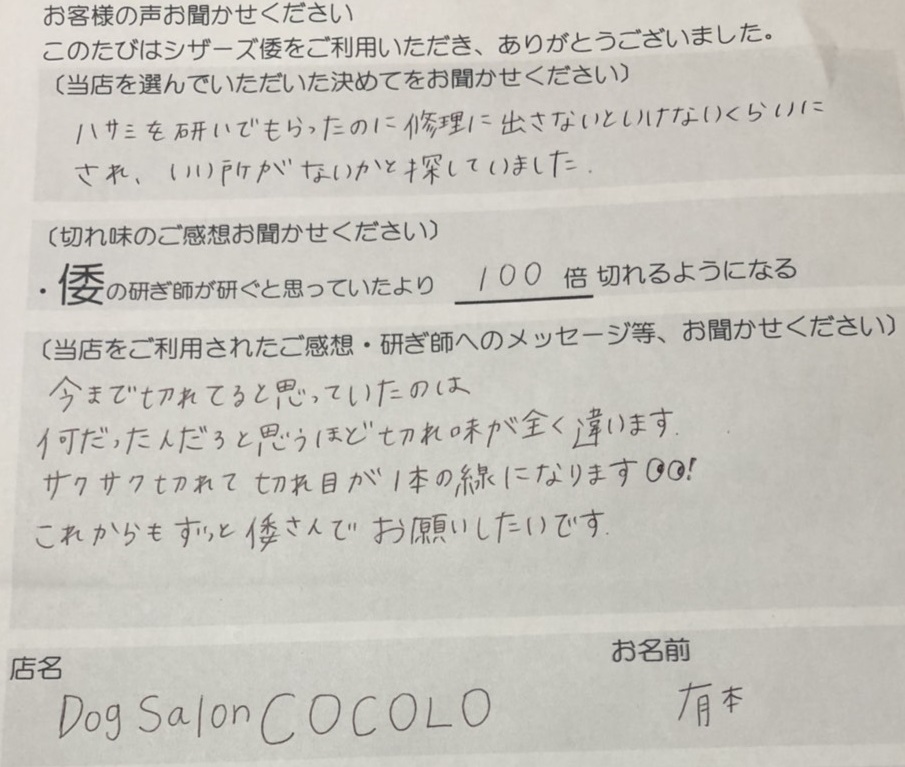 お客様の声お聞かせください
このたびはシザーズ倭をご利用いただき、ありがとうございました。
〔当店を選んでいただいた決めてをお聞かせください〕
ハサミを研いでもらったのに修理に出さないといけないくらいに
され、いい所がないかと探していました.
〔切れ味のご感想お聞かせください〕
・倭の研ぎ師が研ぐと思っていたより 100 倍 切れるようになる
〔当店をご利用されたご感想・研ぎ師へのメッセージ等、お聞かせください〕
今まで切れてると思っていたのは
何だったんだろと思うほど切れ味が全く違います.
サクサク切れて切れ目が1本の線になります!
これからもずっと倭さんでお願いしたいです.
店名
お名前
Dog Salon COCOLO
有本